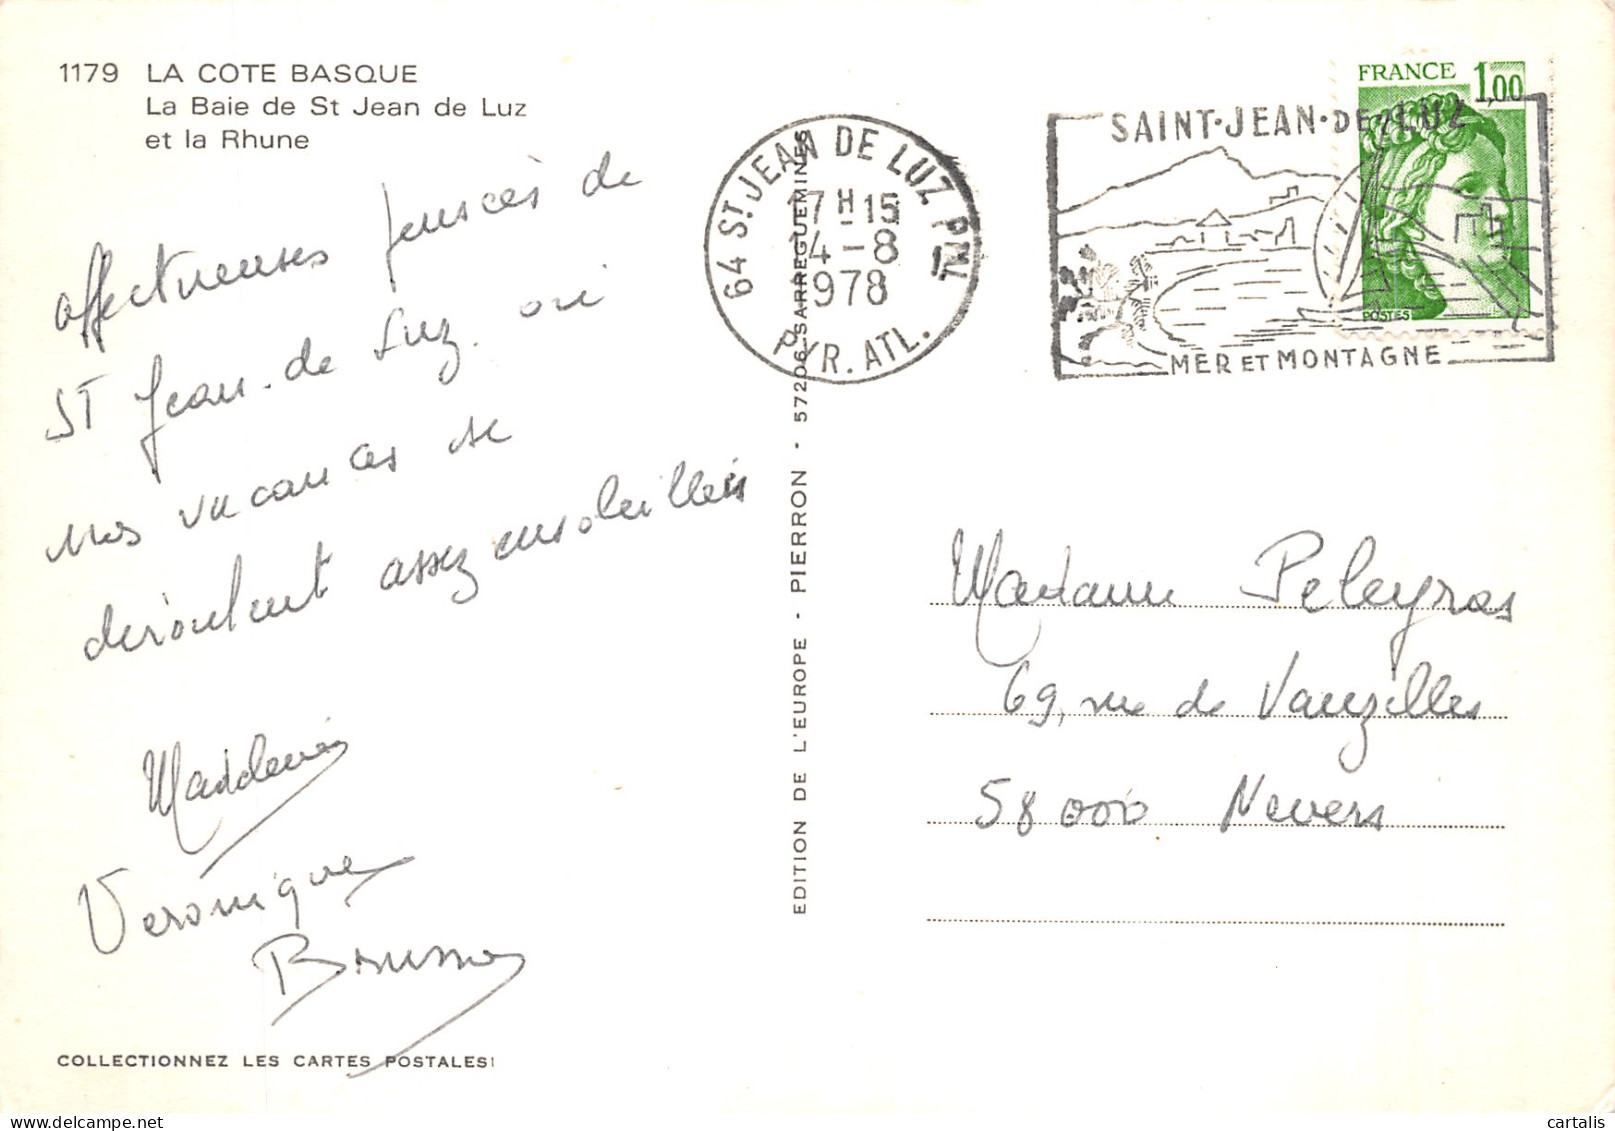 1179 LA COTE BASQUE
La Baie de St Jean de Luz
et la Rhune
affectueuses pensées de
ST Jean-de Luz. où
nos vacances se
déroulent assez ensoleillées
Véronique
COLLECTIONNEZ LES CARTES POSTALES!
EDITION DE L'EUROPE - PIERRON - 57206 SARREGUEMINES
64 ST. JEAN DE LUZ PPAL
17H15
4-8
1978
PYR. ATL.
SAINT·JEAN·DE·LUZ
MER ET MONTAGNE
FRANCE 1,00
POSTES
Madame Peleyras
69, rue de Vauzelles
58000 Nevers
cartalis